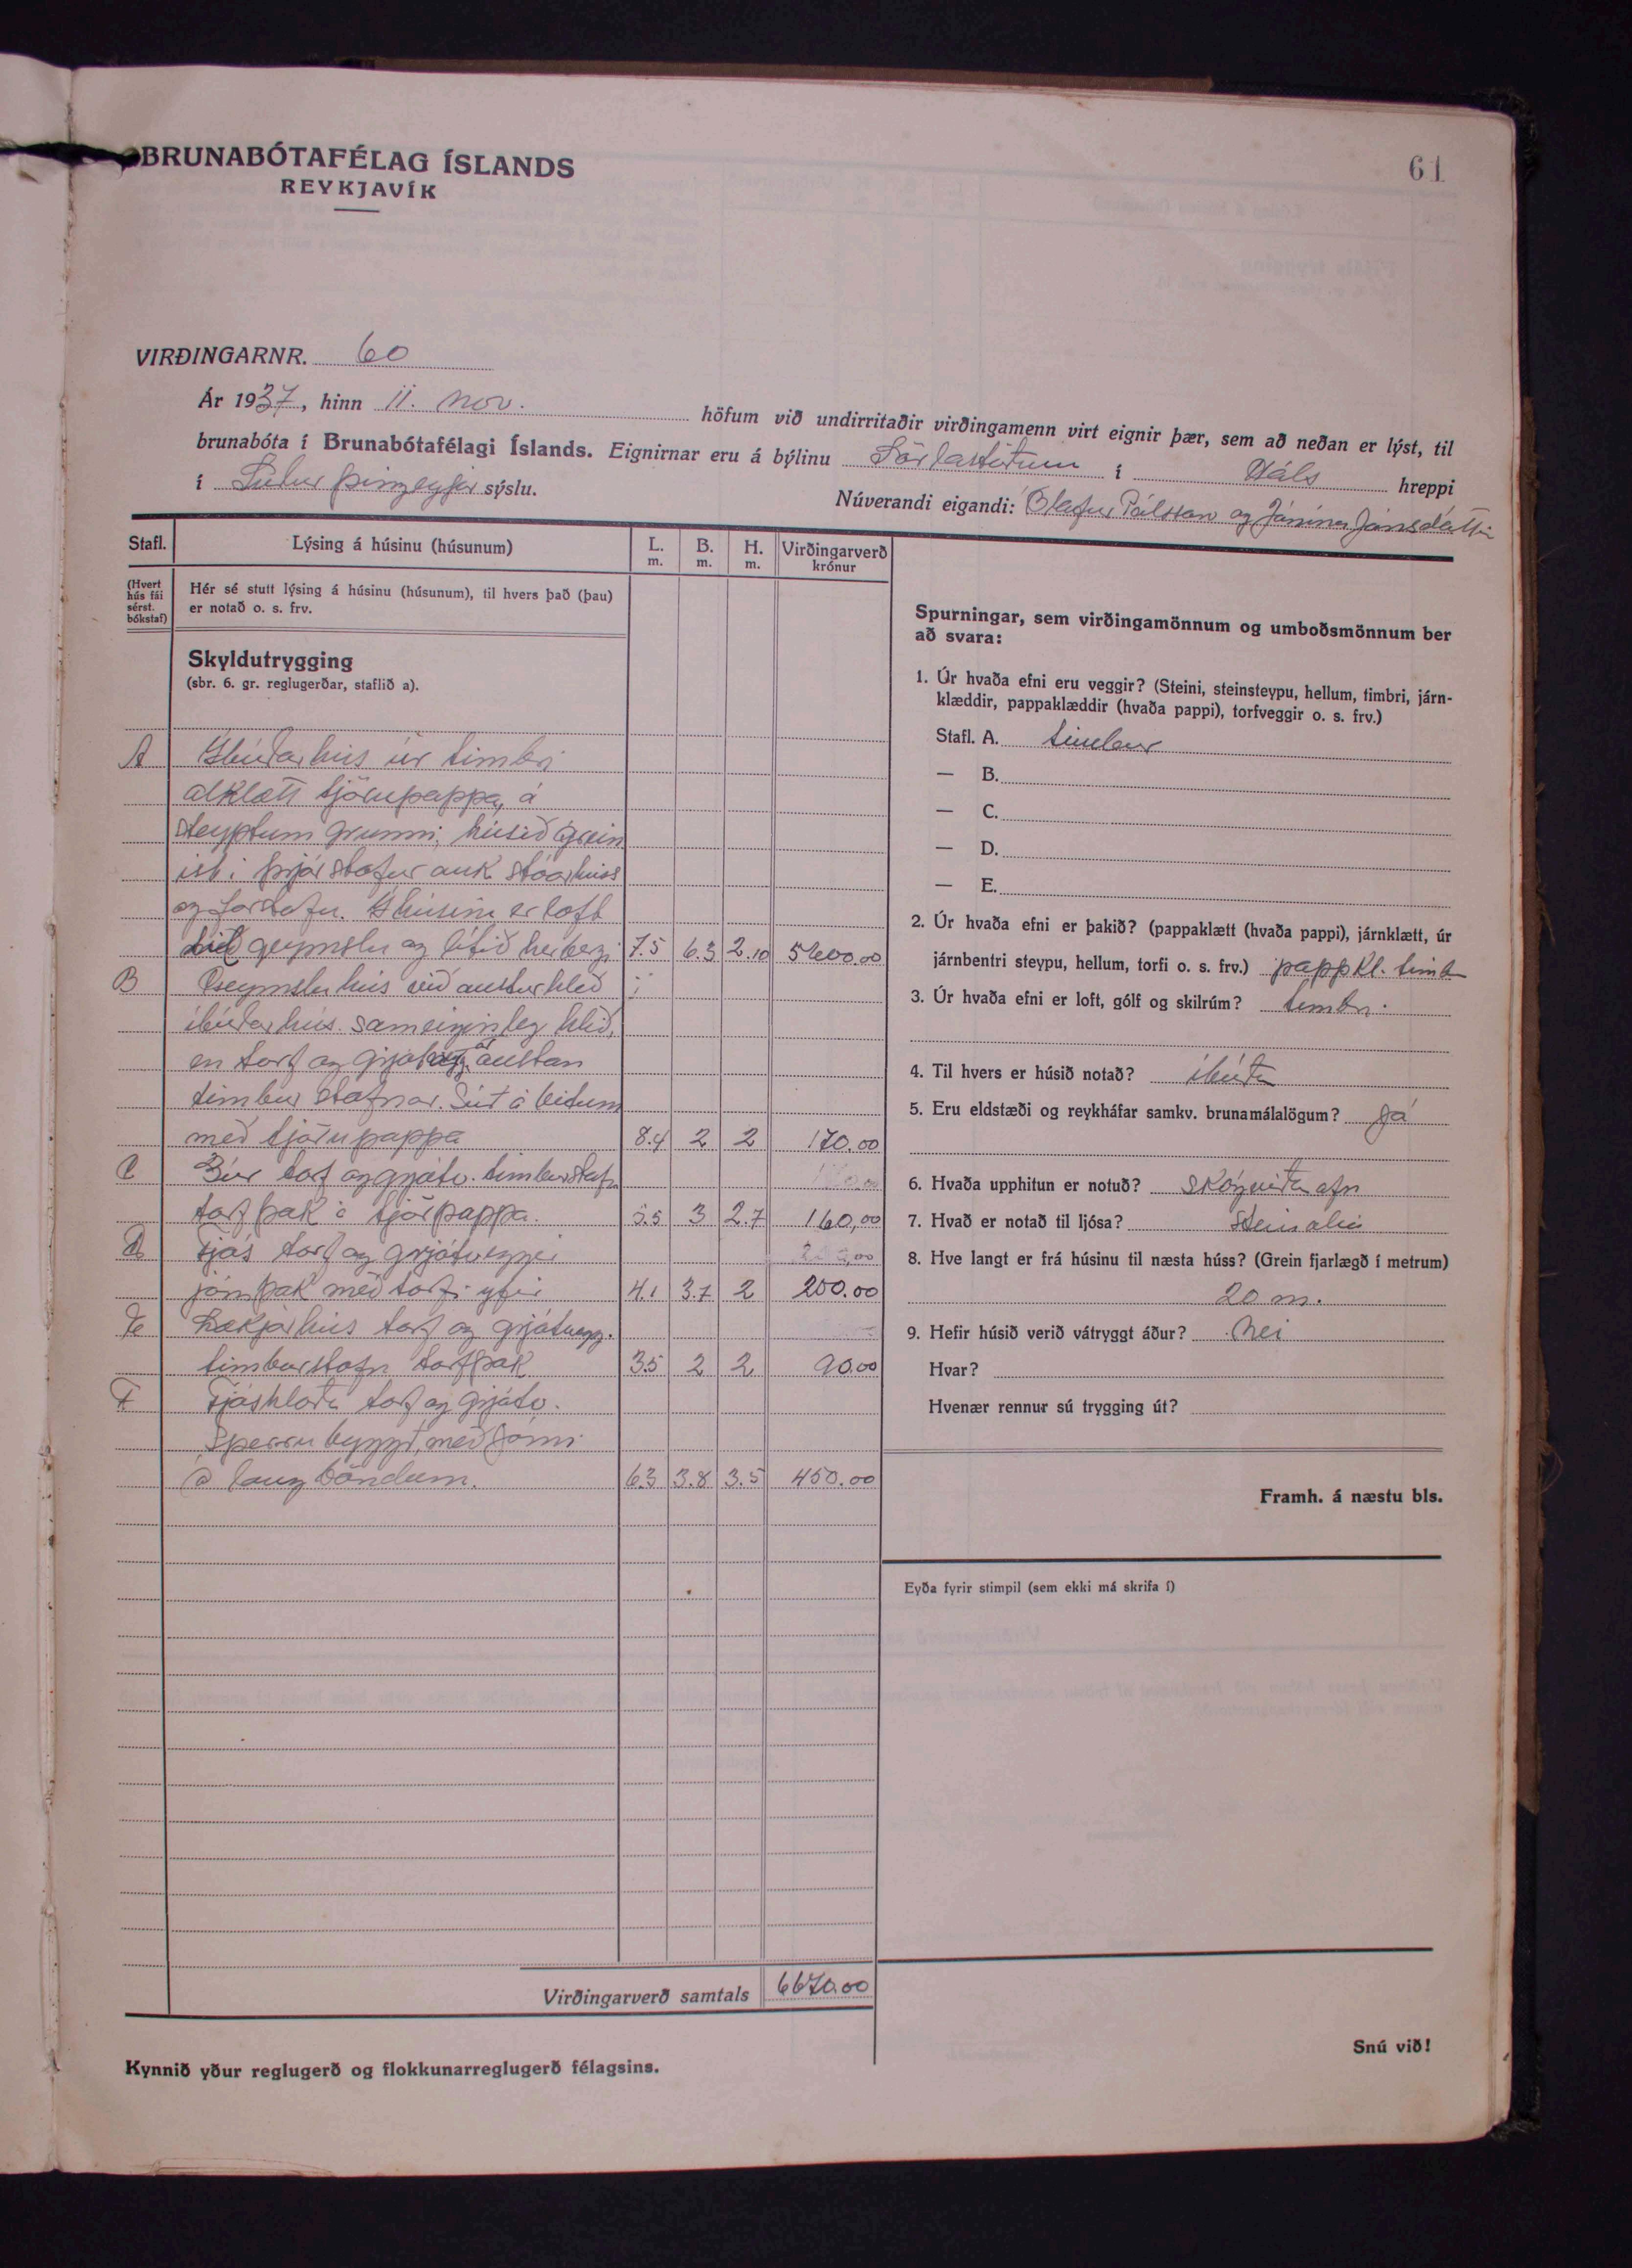 BRUNABÓTAFÉLAG ÍSLANDS
REYKJAVÍK
61
VIRÐINGARNR. 60
Ár 1937, hinn 11. nóv. höfum við undirritaðir virðingamenn virt eignir þær, sem að neðan er lýst, til
brunabóta í Brunabótafélagi Íslands. Eignirnar eru á býlinu Sörlastöðum í Háls hreppi
í Suður þingeyjar sýslu. Núverandi eigandi: Ólafur Pálsson og Jónína Jónsdóttir
Stafl. Lýsing á húsinu (húsunum) L. m. B. m. H. m. Virðingarverð krónur
(Hvert hús fái sérst. bókstaf)
Hér sé stutt lýsing á húsinu (húsunum), til hvers það (þau)
er notað o. s. frv.
Skyldutrygging
(sbr. 6. gr. reglugerðar, staflið a).
A Íbúðarhús úr timbri
alklætt tjörupappa, á
steyptum grunni, húsið grein
ist í þrjár stofur auk
og forstofu. Í húsinu er loft
geymslu og lítið herbergi 7.5 6.3 2.10
B Geymsluhús við austurhlið
íbúðarhús. sameiginleg hlið,
en torf og austan
timbur stafnar. Súð á bitum
með tjörupappa 8.4 2 2 170.00
C Búr torf og grjótv. timburstafn
torfþak á tjörpappa. 5.5 3 2.7 160,00
D Fjós torf og grjótveggir
járnþak með torfi yfir 4.1 3.7 2 200.00
E Lækjarhús torf og grjótvegg.
timburstafn torfþak 3.5 2 2 90.00
F Fjóshlaða torf og grjótv.
Sperru byggð, með járni
á langböndum. 6.3 3.8 3.5 450.00
Virðingarverð samtals 6670.00
Kynnið yður reglugerð og flokkunarreglugerð félagsins.
Spurningar, sem virðingamönnum og umboðsmönnum ber
að svara:
1. Úr hvaða efni eru veggir? (Steini, steinsteypu, hellum, timbri, járn-
klæddir, pappaklæddir (hvaða pappi), torfveggir o. s. frv.)
Stafl. A. timbur
— B.
— C.
— D.
— E.
2. Úr hvaða efni er þakið? (pappaklætt (hvaða pappi), járnklætt, úr
járnbentri steypu, hellum, torfi o. s. frv.) pappkl. timb
3. Úr hvaða efni er loft, gólf og skilrúm? timbri
4. Til hvers er húsið notað? íbúðar
5. Eru eldstæði og reykháfar samkv. brunamálalögum? Já
6. Hvaða upphitun er notuð? Skógviðarofn
7. Hvað er notað til ljósa? Steinolía
8. Hve langt er frá húsinu til næsta húss? (Grein fjarlægð í metrum)
20 m.
9. Hefir húsið verið vátryggt áður? Nei
Hvar?
Hvenær rennur sú trygging út?
Framh. á næstu bls.
Eyða fyrir stimpil (sem ekki má skrifa í)
Snú við!